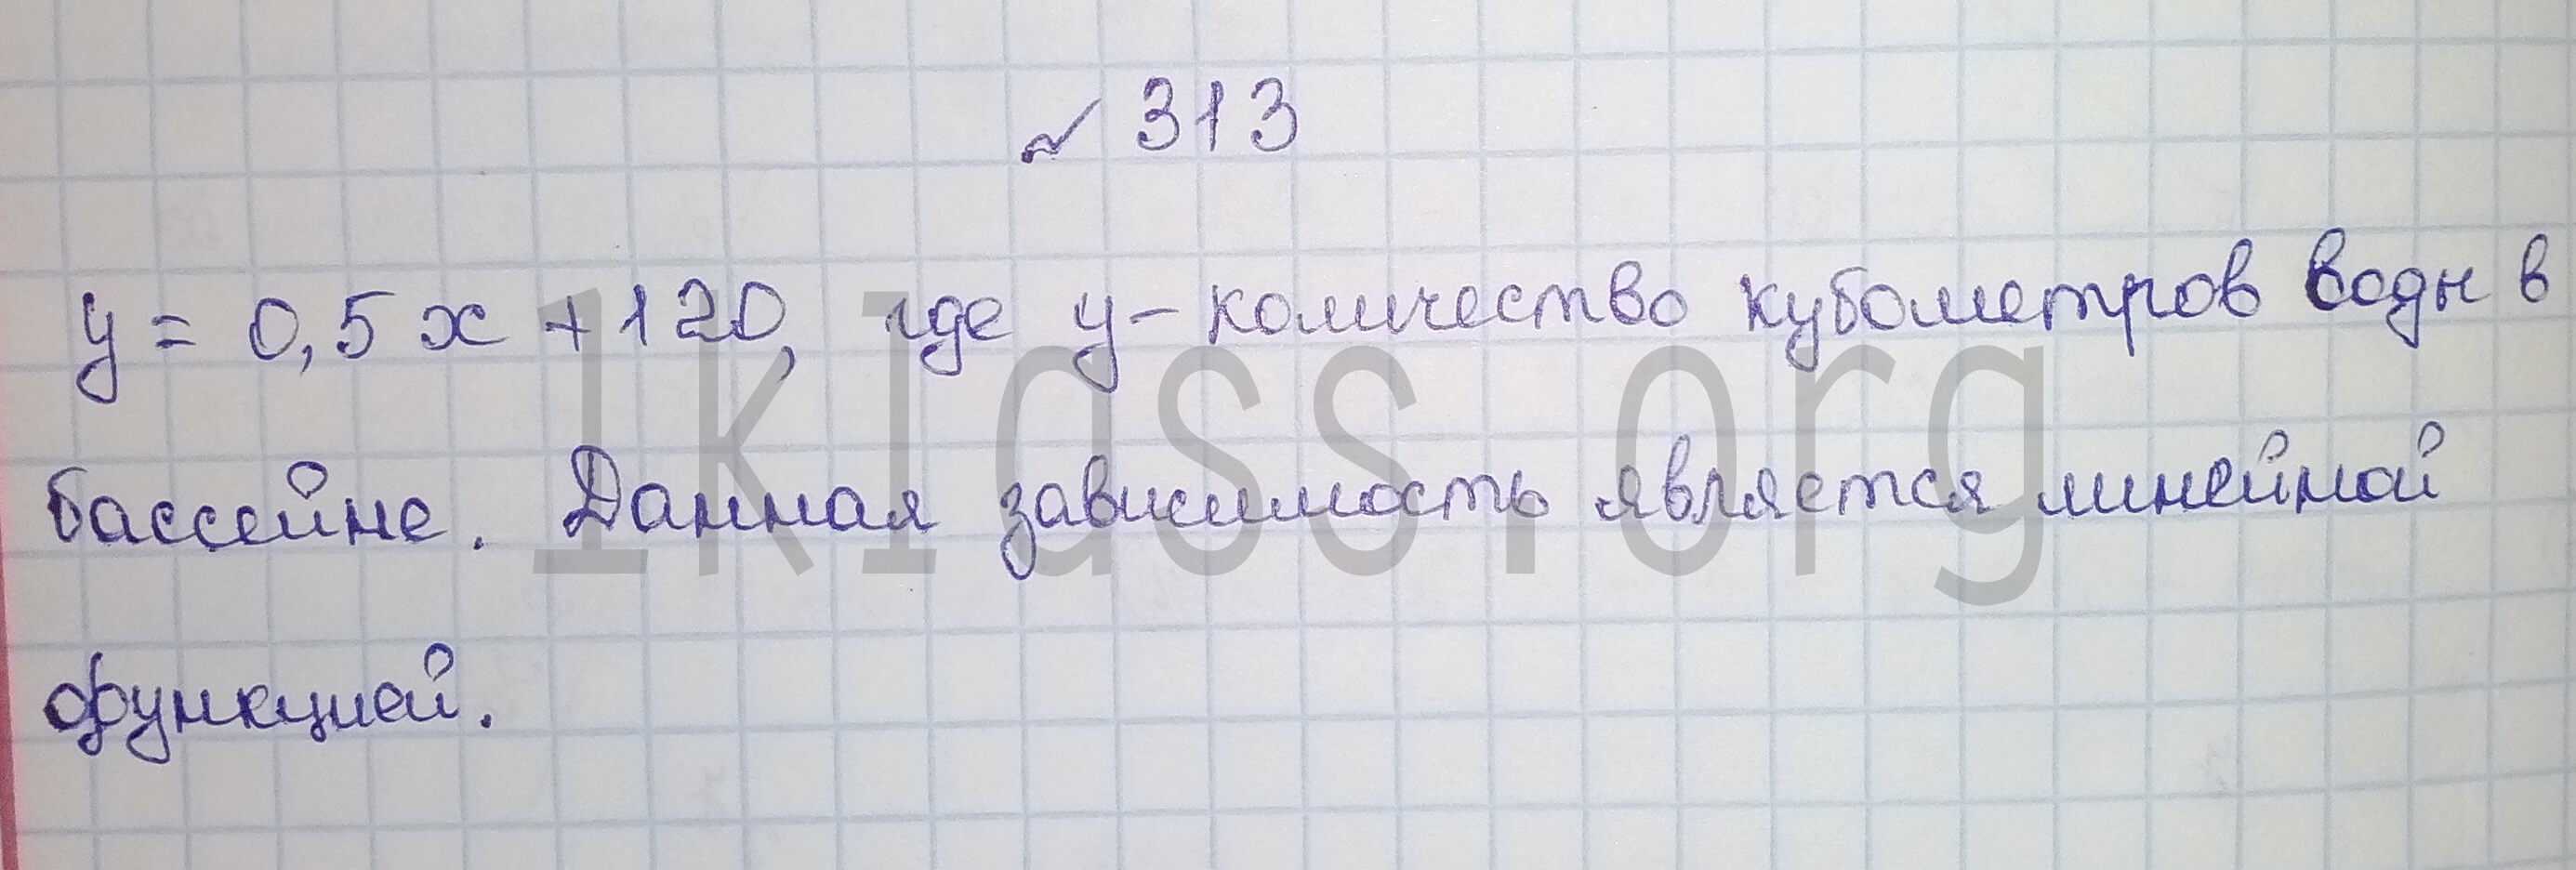 № 313
у = 0,5 х + 120, где у - количество кубометров воды в
1klass.org
бассейне. Данная зависимость является линейной
функцией.